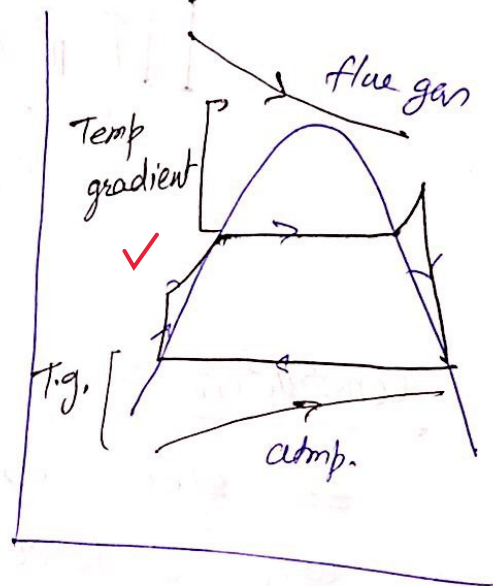 flue gas
Temp
gradient
T.g.
atmp.